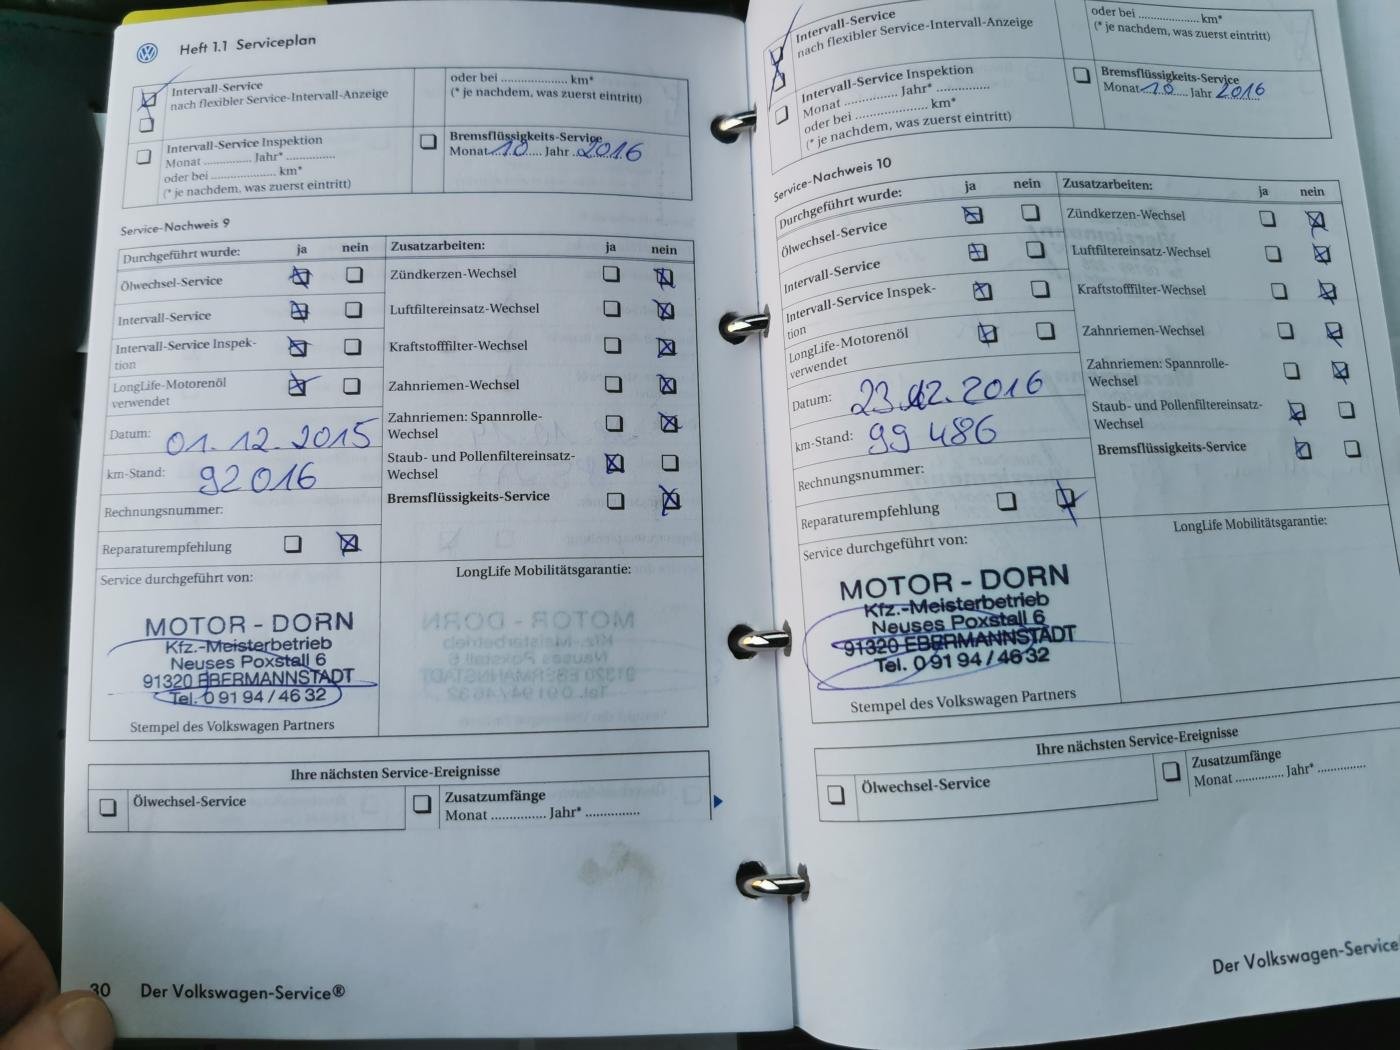 Heft 1.1 Serviceplan
Intervall-Service
nach flexibler Service-Intervall-Anzeige
oder bei .................... km*
(* je nachdem, was zuerst eintritt)
Intervall-Service Inspektion
Monat .............. Jahr* ..............
oder bei .................... km*
(* je nachdem, was zuerst eintritt)
Bremsflüssigkeits-Service
Monat 10 Jahr 2016
Service-Nachweis 9
Durchgeführt wurde: ja nein
Ölwechsel-Service
Intervall-Service
Intervall-Service Inspek-
tion
LongLife-Motorenöl
verwendet
Datum: 01.12.2015
km-Stand: 92016
Rechnungsnummer:
Reparaturempfehlung
Zusatzarbeiten: ja nein
Zündkerzen-Wechsel
Luftfiltereinsatz-Wechsel
Kraftstofffilter-Wechsel
Zahnriemen-Wechsel
Zahnriemen: Spannrolle-
Wechsel
Staub- und Pollenfiltereinsatz-
Wechsel
Bremsflüssigkeits-Service
Service durchgeführt von:
MOTOR - DORN
Kfz.-Meisterbetrieb
Neuses Poxstall 6
91320 EBERMANNSTADT
Tel. 0 91 94 / 46 32
Stempel des Volkswagen Partners
LongLife Mobilitätsgarantie:
Ihre nächsten Service-Ereignisse
Ölwechsel-Service
Zusatzumfänge
Monat .............. Jahr* ..............
30 Der Volkswagen-Service®
Intervall-Service
nach flexibler Service-Intervall-Anzeige
oder bei .................... km*
(* je nachdem, was zuerst eintritt)
Intervall-Service Inspektion
Monat .............. Jahr* ..............
oder bei .................... km*
(* je nachdem, was zuerst eintritt)
Bremsflüssigkeits-Service
Monat 10 Jahr 2016
Service-Nachweis 10
Durchgeführt wurde: ja nein
Ölwechsel-Service
Intervall-Service
Intervall-Service Inspek-
tion
LongLife-Motorenöl
verwendet
Datum: 23.12.2016
km-Stand: 99 486
Rechnungsnummer:
Reparaturempfehlung
Zusatzarbeiten: ja nein
Zündkerzen-Wechsel
Luftfiltereinsatz-Wechsel
Kraftstofffilter-Wechsel
Zahnriemen-Wechsel
Zahnriemen: Spannrolle-
Wechsel
Staub- und Pollenfiltereinsatz-
Wechsel
Bremsflüssigkeits-Service
Service durchgeführt von:
MOTOR - DORN
Kfz.-Meisterbetrieb
Neuses Poxstall 6
91320 EBERMANNSTADT
Tel. 0 91 94 / 46 32
Stempel des Volkswagen Partners
LongLife Mobilitätsgarantie:
Ihre nächsten Service-Ereignisse
Ölwechsel-Service
Zusatzumfänge
Monat .............. Jahr* ..............
Der Volkswagen-Service